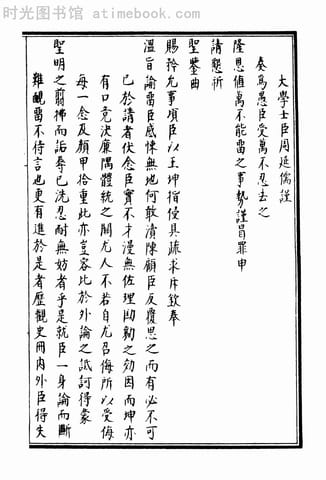 时光图书馆 - atimebook.com
大學士臣周延儒謹
奏為愚臣受萬不忍去之
隆恩值萬不能留之事勢謹冒罪申
請懇祈
聖鑒曲
賜矜允事頃臣以王坤指侵具疏求斥致奉
溫旨諭留臣感悚無地何敢瀆陳顧臣反覆思之而有必不可
已於請者伏念臣實不才漫無佐理勛勷之効因而坤亦
有口竟決廉隅體統之閑尤人不若自尤召侮所以受侮
每一念及顏甲拾重此亦豈容比於外論之詆訶得蒙
聖明之翦拂而詬辱已洗忍耐無妨者乎是就臣一身論而斷
難覥留不待言也更有進於是者歷觀史冊內外臣得失